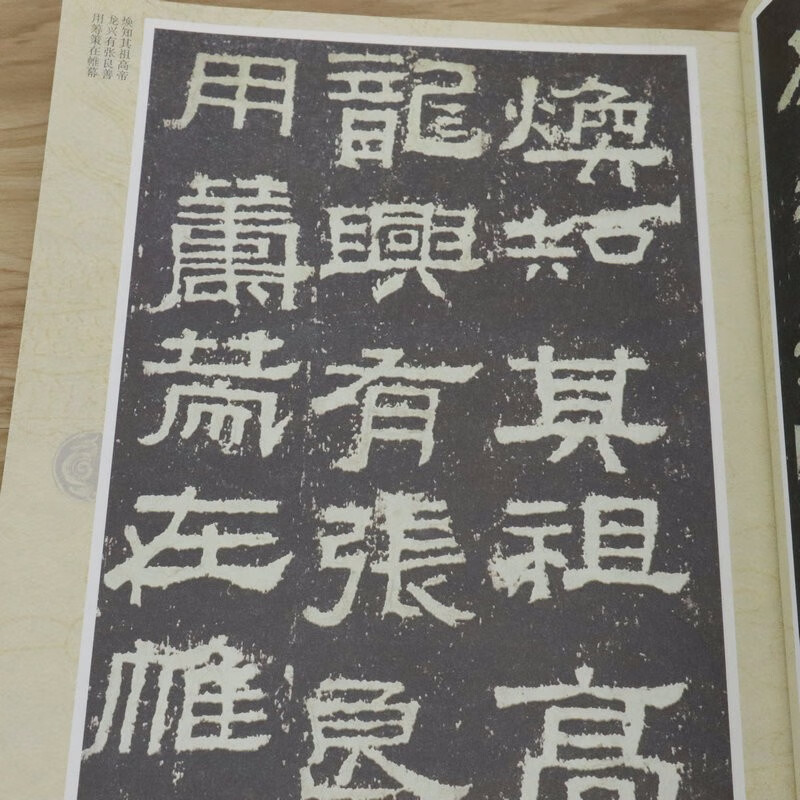 煥知其祖高
龍興有張良
用籌策在帷
焕知其祖高帝
龙兴有张良善
用筹策在帷幕